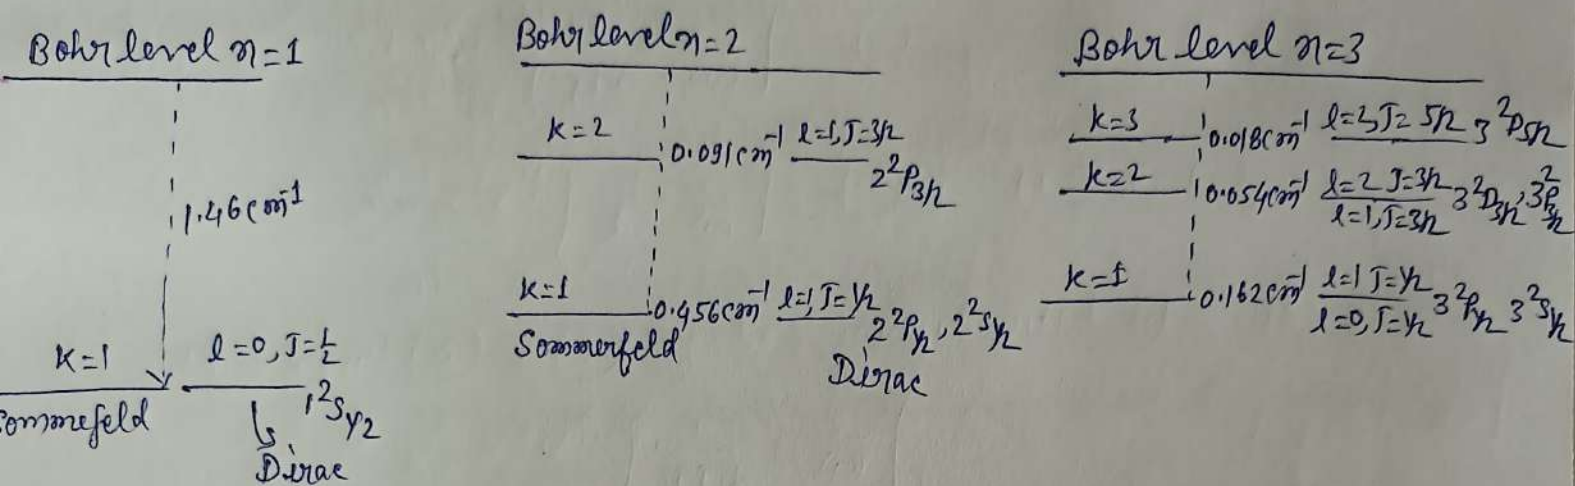 Bohr level n=1
1.46cm⁻¹
k=1
l=0, J=1/2
1²S1/2
Sommefeld
Dirac
Bohr level n=2
k=2
0.091cm⁻¹
l=1, J=3/2
2²P3/2
k=1
0.456cm⁻¹
l=1, J=1/2
2²P1/2, 2²S1/2
Sommerfeld
Dirac
Bohr level n=3
k=3
0.018cm⁻¹
l=3 J=5/2
3²P5/2
k=2
0.054cm⁻¹
l=2 J=3/2
l=1, J=3/2
3²D3/2, 3²P3/2
k=1
0.162cm⁻¹
l=1 J=1/2
l=0, J=1/2
3²P1/2 3²S1/2